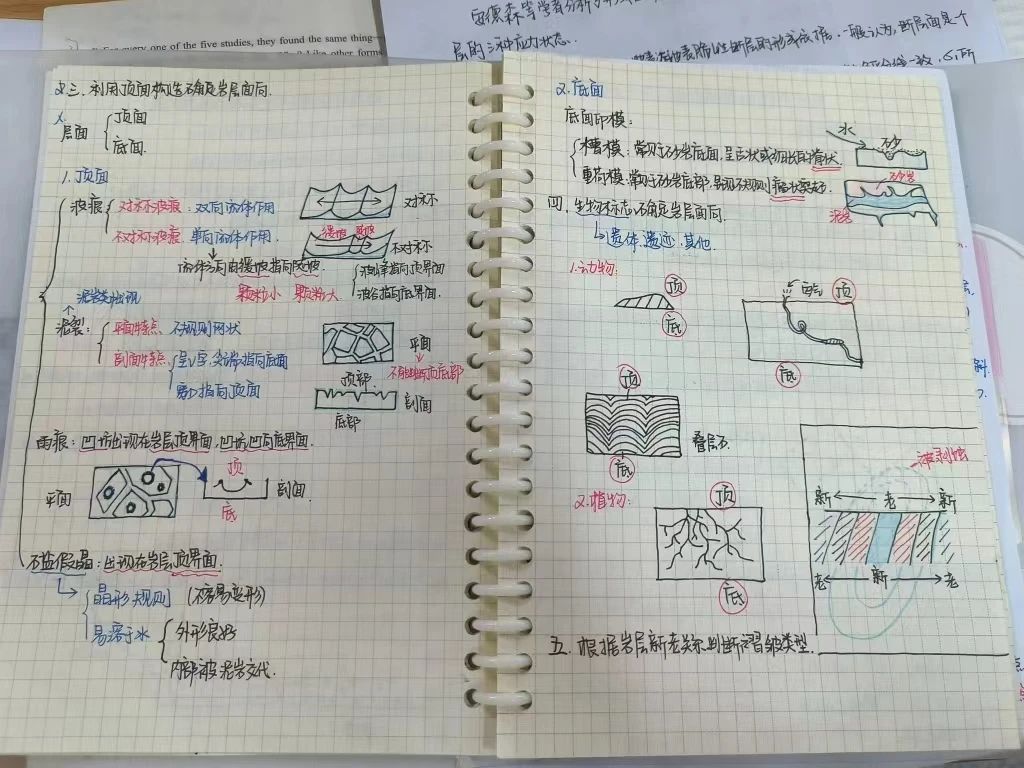 every one of the five studies, they found the same thing—
安德森等学者分析
层的三种应力状态.
三. 利用顶面构造确定岩层面向.
层面
顶面
底面.
1. 顶面
波痕
对称波痕: 双向流体作用
对称
不对称波痕: 单向流体作用.
缓坡 陡坡
不对称
流体方向由缓坡指向陡坡
颗粒小 颗粒大
波峰指向顶界面
波谷指向底界面.
泥岩类出现
泥裂:
平面特点 不规则网状
平面
剖面特点 呈V字,尖端指向底面
开口指向顶面
顶部
剖面
底部
雨痕: 凹坑出现在岩层顶界面, 凹坑凹向底界面.
平面
顶
底
剖面
石盐假晶: 出现在岩层顶界面.
晶形规则 (不容易变形)
易溶于水
外形良好
内部被泥岩交代.
2. 底面
底面印模:
水
砂
槽模: 常见于砂岩底面,
重荷模: 常见于砂岩底部,
砂岩
泥岩
四. 生物标志确定岩层面向.
遗体、遗迹、其他.
1. 动物:
顶
底
顶
底
顶
底
叠层石
2. 植物:
顶
底
被剥蚀
新 老 新
老 新 老
五. 根据岩层新老关系判断褶皱类型.